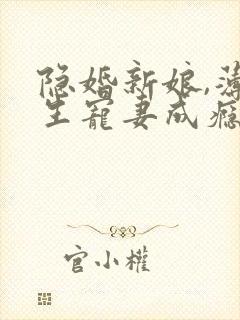 隐婚新娘,薄
生宠妻成瘾
官小權